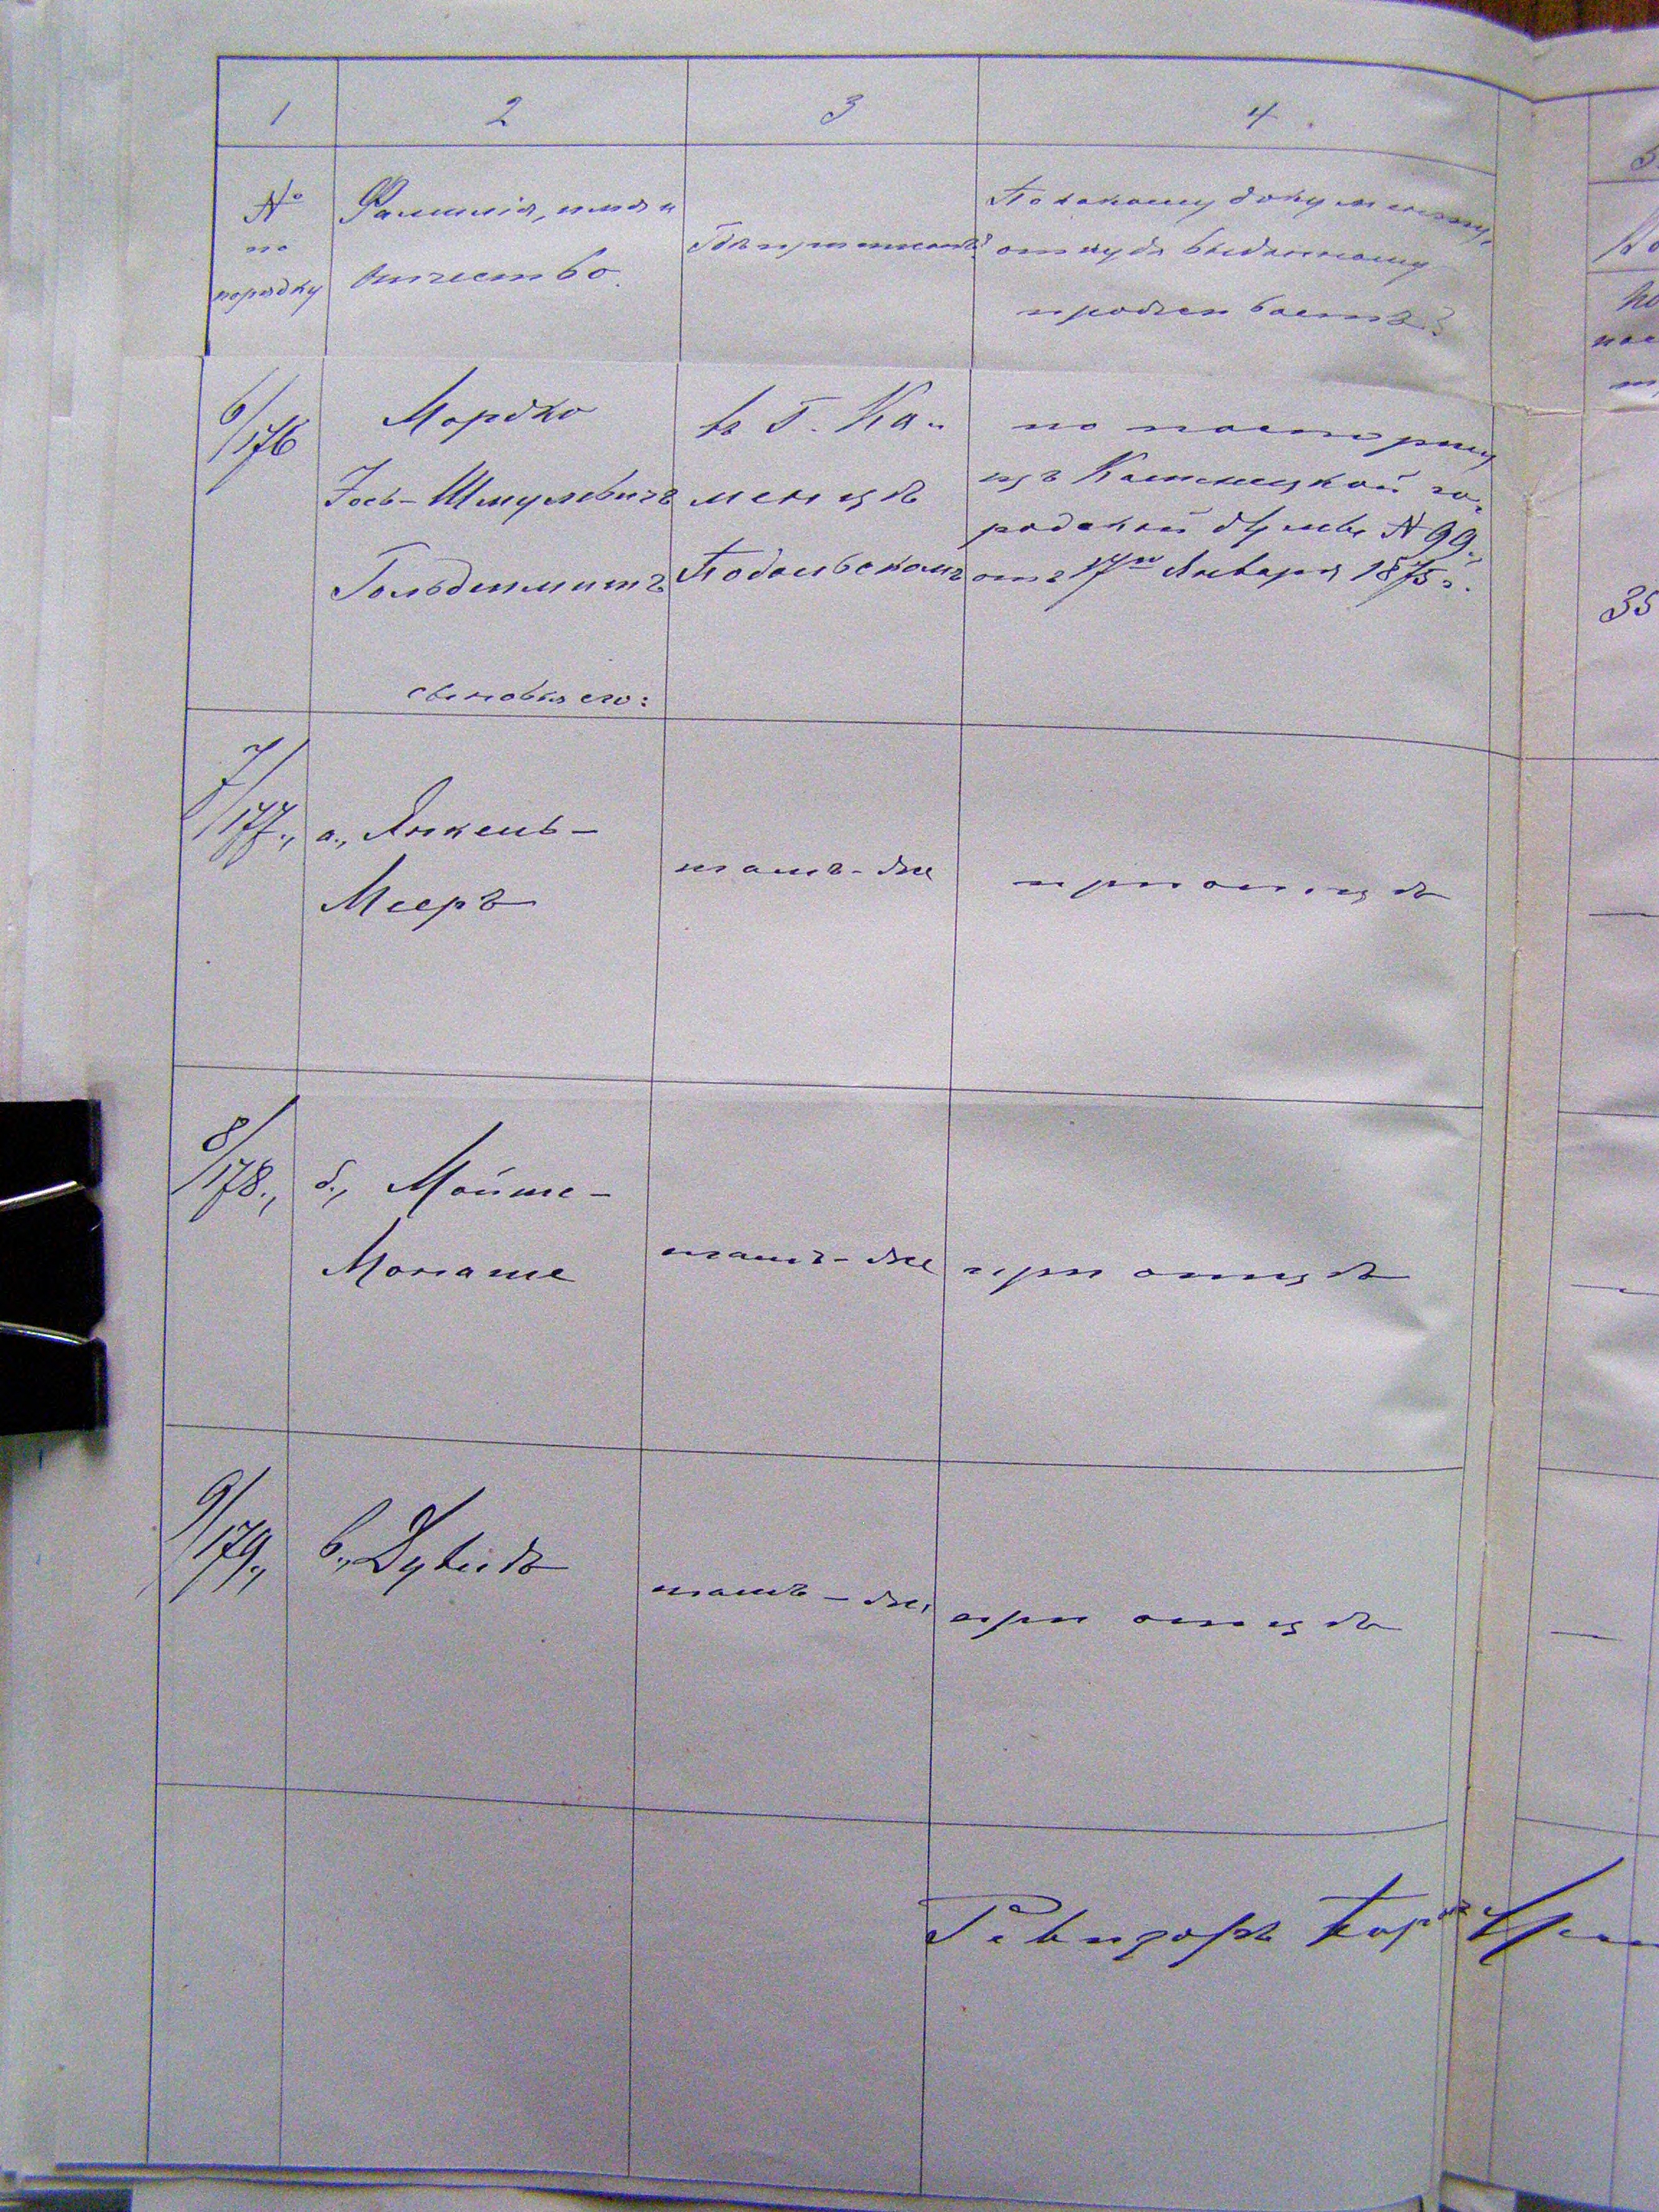 1
2
3
4
№
по
порядку
Фамилія, имя и
отчество.
Гдѣ приписанъ?
По какому документу,
откуда выданному
проживаетъ?
6/176
Мордко
Іось-Шмулевичъ
Гольдшмитъ
сыновья его:
въ Г. Ка-
менцѣ
Подольскомъ
по паспорту
изъ Каменецкой го-
родской думы № 99.
отъ 17го Января 1875 г.
7/177.,
а., Янкель-
Мееръ
тамъ-же
при отцѣ
8/178.,
б., Мойше-
Монаше
тамъ-же
при отцѣ
9/179.,
в., Дувидъ
тамъ-же,
при отцѣ
Ревизоръ
35